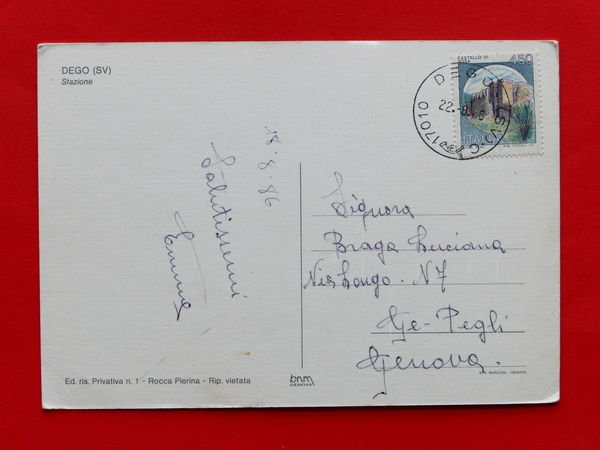 DEGO (SV)
Stazione
CASTELLO DI
450
ITALIA
17010 DEGO (SV)
22.-8.86
18.8.86
Salutissimi
Emma
Signora
Braga Luciana
Via Longo. N7
Ge-Pegli
Genova.
Ed. ris. Privativa n. 1 - Rocca Pierina - Rip. vietata
bnm
GENOVA